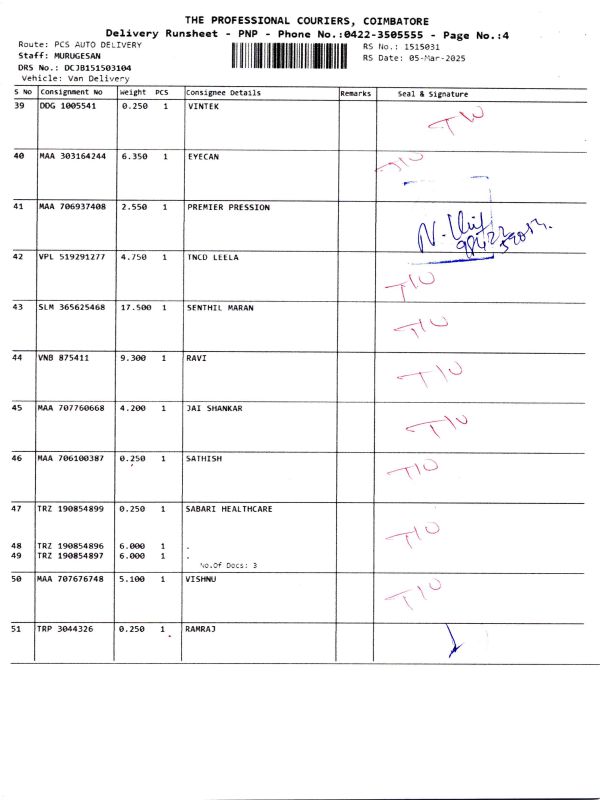 THE PROFESSIONAL COURIERS, COIMBATORE
Delivery Runsheet - PNP - Phone No.:0422-3505555 - Page No.:4
Route: PCS AUTO DELIVERY RS No.: 1515031
Staff: MURUGESAN RS Date: 05-Mar-2025
DRS No.: DCJB151503104
Vehicle: Van Delivery
S No Consignment No Weight PCS Consignee Details Remarks Seal & Signature
39 DDG 1005541 0.250 1 VINTEK
40 MAA 303164244 6.350 1 EYECAN
41 MAA 706937408 2.550 1 PREMIER PRESSION
42 VPL 519291277 4.750 1 TNCD LEELA
43 SLM 365625468 17.500 1 SENTHIL MARAN
44 VNB 875411 9.300 1 RAVI
45 MAA 707760668 4.200 1 JAI SHANKAR
46 MAA 706100387 0.250 1 SATHISH
47 TRZ 190854899 0.250 1 SABARI HEALTHCARE
48 TRZ 190854896 6.000 1 .
49 TRZ 190854897 6.000 1 .
No.Of Docs: 3
50 MAA 707676748 5.100 1 VISHNU
51 TRP 3044326 0.250 1 RAMRAJ